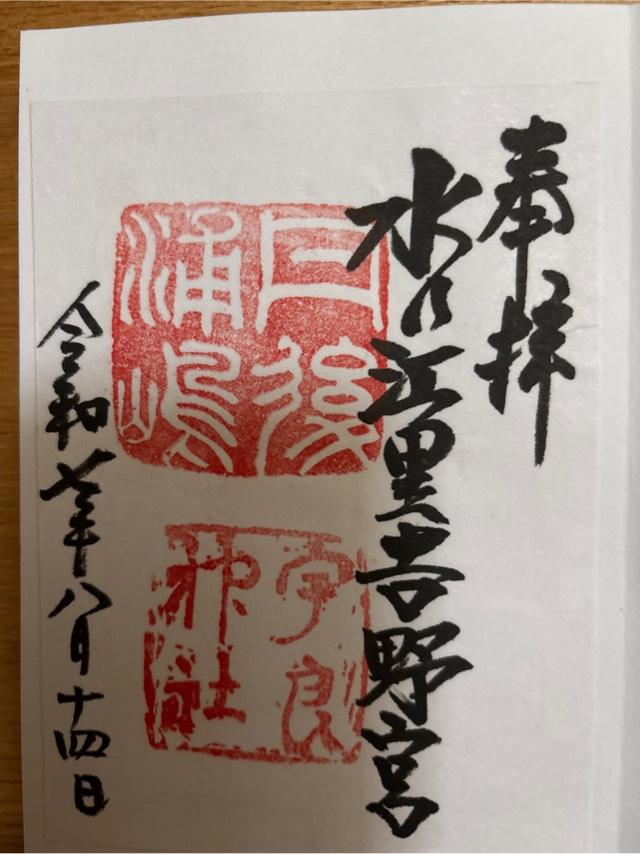 奉拝
水江里吉野宮
丹後
浦嶋
宇良
神社
令和七年八月十四日